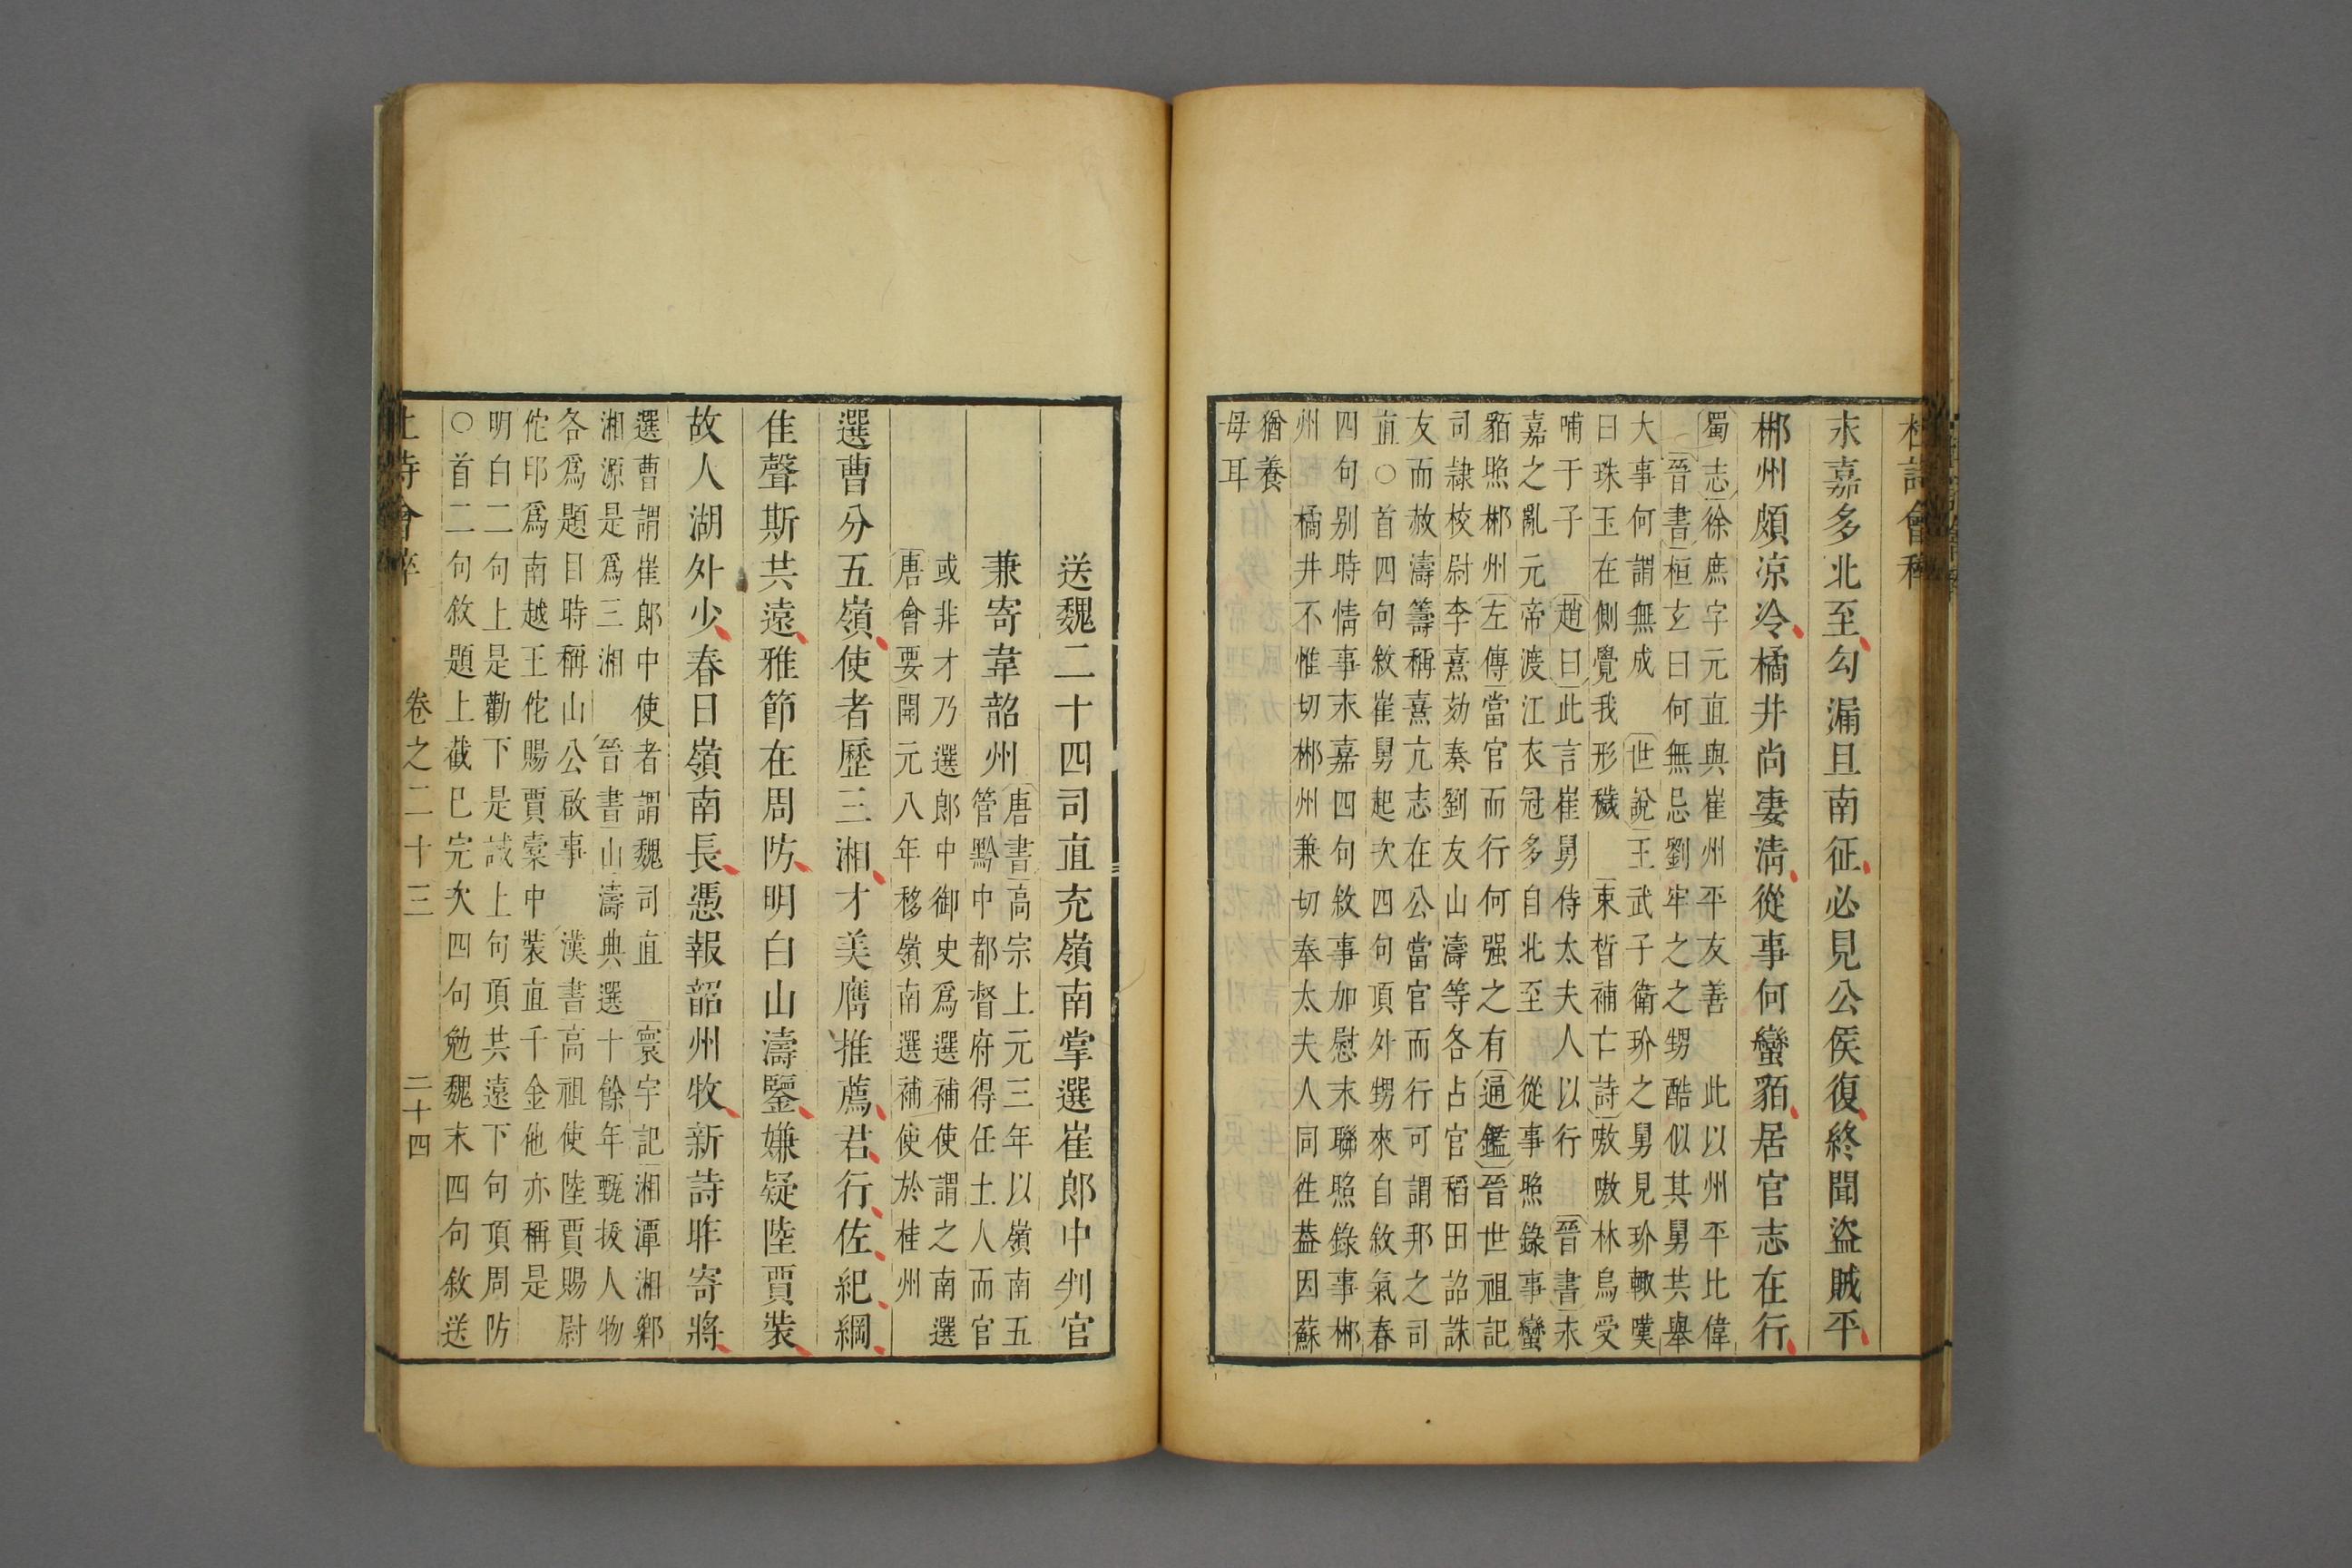 杜詩會稡
永嘉多北至勾漏且南征必見公侯復終聞盜賊平
郴州頗凉冷橘井尚淒清從事何蠻貊居官志在行
蜀志徐庶字元直與崔州平友善此以州平比偉
晉書桓玄曰何無忌劉牢之之甥酷似其舅共舉
大事何謂無成世說王武子衛玠之舅見玠輙嘆
曰珠玉在側覺我形穢束晳補亡詩嗷嗷林烏受
哺于子趙曰此言崔舅侍太夫人以行晉書永
嘉之亂元帝渡江衣冠多自北至從事照錄事蠻
貊照郴州左傳當官而行何强之有通鑑晉世祖記
司隷校尉李熹劾奏劉友山濤等各占官稻田詔誅
友而赦濤籌稱熹亢志在公當官而行可謂邦之司
直○首四句敘崔舅起次四句頂外甥來自敘氣春
四句别時情事永嘉四句敘事加慰末聯照錄事郴
州橘井不惟切郴州兼切奉太夫人同徃葢因蘇
猶養
母耳
送魏二十四司直充嶺南掌選崔郎中判官
兼寄韋韶州
唐書高宗上元三年以嶺南五
管黔中都督府得任土人而官
或非才乃選郎中御史爲選補使謂之南選
唐會要開元八年移嶺南選補使於桂州
選曹分五嶺使者歷三湘才美膺推薦君行佐紀綱
佳聲斯共遠雅節在周防明白山濤鑒嫌疑陸賈裝
故人湖外少春日嶺南長憑報韶州牧新詩昨寄將
選曹謂崔郎中使者謂魏司直寰宇記湘潭湘鄉
湘源是爲三湘晉書山濤典選十餘年甄拔人物
各爲題目時稱山公啟事漢書高祖使陸賈賜尉
佗印爲南越王佗賜賈橐中裝直千金他亦稱是
明白二句上是勸下是誡上句頂共遠下句頂周防
○首二句敘題上截已完次四句勉魏末四句敘送
卷之二十三
二十四